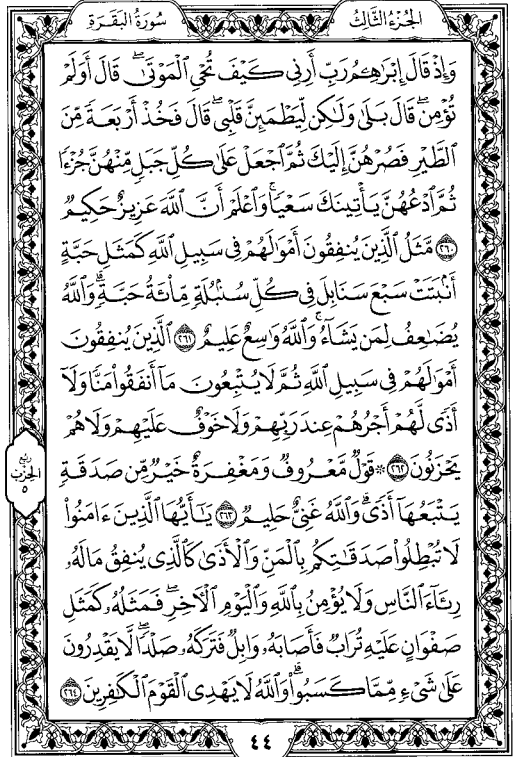 الجزء الثالث
سورة البقرة
وَإِذْ قَالَ إِبْرَٰهِـۧمُ رَبِّ أَرِنِى كَيْفَ تُحْىِ ٱلْمَوْتَىٰ ۖ قَالَ أَوَلَمْ
تُؤْمِن ۖ قَالَ بَلَىٰ وَلَٰكِن لِّيَطْمَئِنَّ قَلْبِى ۖ قَالَ فَخُذْ أَرْبَعَةً مِّنَ
ٱلطَّيْرِ فَصُرْهُنَّ إِلَيْكَ ثُمَّ ٱجْعَلْ عَلَىٰ كُلِّ جَبَلٍ مِّنْهُنَّ جُزْءًا
ثُمَّ ٱدْعُهُنَّ يَأْتِينَكَ سَعْيًا ۚ وَٱعْلَمْ أَنَّ ٱللَّهَ عَزِيزٌ حَكِيمٌ
٢٦٠ مَّثَلُ ٱلَّذِينَ يُنفِقُونَ أَمْوَٰلَهُمْ فِى سَبِيلِ ٱللَّهِ كَمَثَلِ حَبَّةٍ
أَنۢبَتَتْ سَبْعَ سَنَابِلَ فِى كُلِّ سُنۢبُلَةٍ مِّا۟ئَةُ حَبَّةٍ ۗ وَٱللَّهُ
يُضَٰعِفُ لِمَن يَشَآءُ ۗ وَٱللَّهُ وَٰسِعٌ عَلِيمٌ ٢٦١ ٱلَّذِينَ يُنفِقُونَ
أَمْوَٰلَهُمْ فِى سَبِيلِ ٱللَّهِ ثُمَّ لَا يُتْبِعُونَ مَآ أَنفَقُوا۟ مَنًّا وَلَآ
أَذًى لَّهُمْ أَجْرُهُمْ عِندَ رَبِّهِمْ وَلَا خَوْفٌ عَلَيْهِمْ وَلَا هُمْ
يَحْزَنُونَ ٢٦٢ ۞ قَوْلٌ مَّعْرُوفٌ وَمَغْفِرَةٌ خَيْرٌ مِّن صَدَقَةٍ
يَتْبَعُهَآ أَذًى ۗ وَٱللَّهُ غَنِىٌّ حَلِيمٌ ٢٦٣ يَٰٓأَيُّهَا ٱلَّذِينَ ءَامَنُوا۟
لَا تُبْطِلُوا۟ صَدَقَٰتِكُم بِٱلْمَنِّ وَٱلْأَذَىٰ كَٱلَّذِى يُنفِقُ مَالَهُۥ
رِئَآءَ ٱلنَّاسِ وَلَا يُؤْمِنُ بِٱللَّهِ وَٱلْيَوْمِ ٱلْـَٔاخِرِ ۖ فَمَثَلُهُۥ كَمَثَلِ
صَفْوَانٍ عَلَيْهِ تُرَابٌ فَأَصَابَهُۥ وَابِلٌ فَتَرَكَهُۥ صَلْدًا ۖ لَّا يَقْدِرُونَ
عَلَىٰ شَىْءٍ مِّمَّا كَسَبُوا۟ ۗ وَٱللَّهُ لَا يَهْدِى ٱلْقَوْمَ ٱلْكَٰفِرِينَ ٢٦٤
ربع
الحزب
٥
٤٤